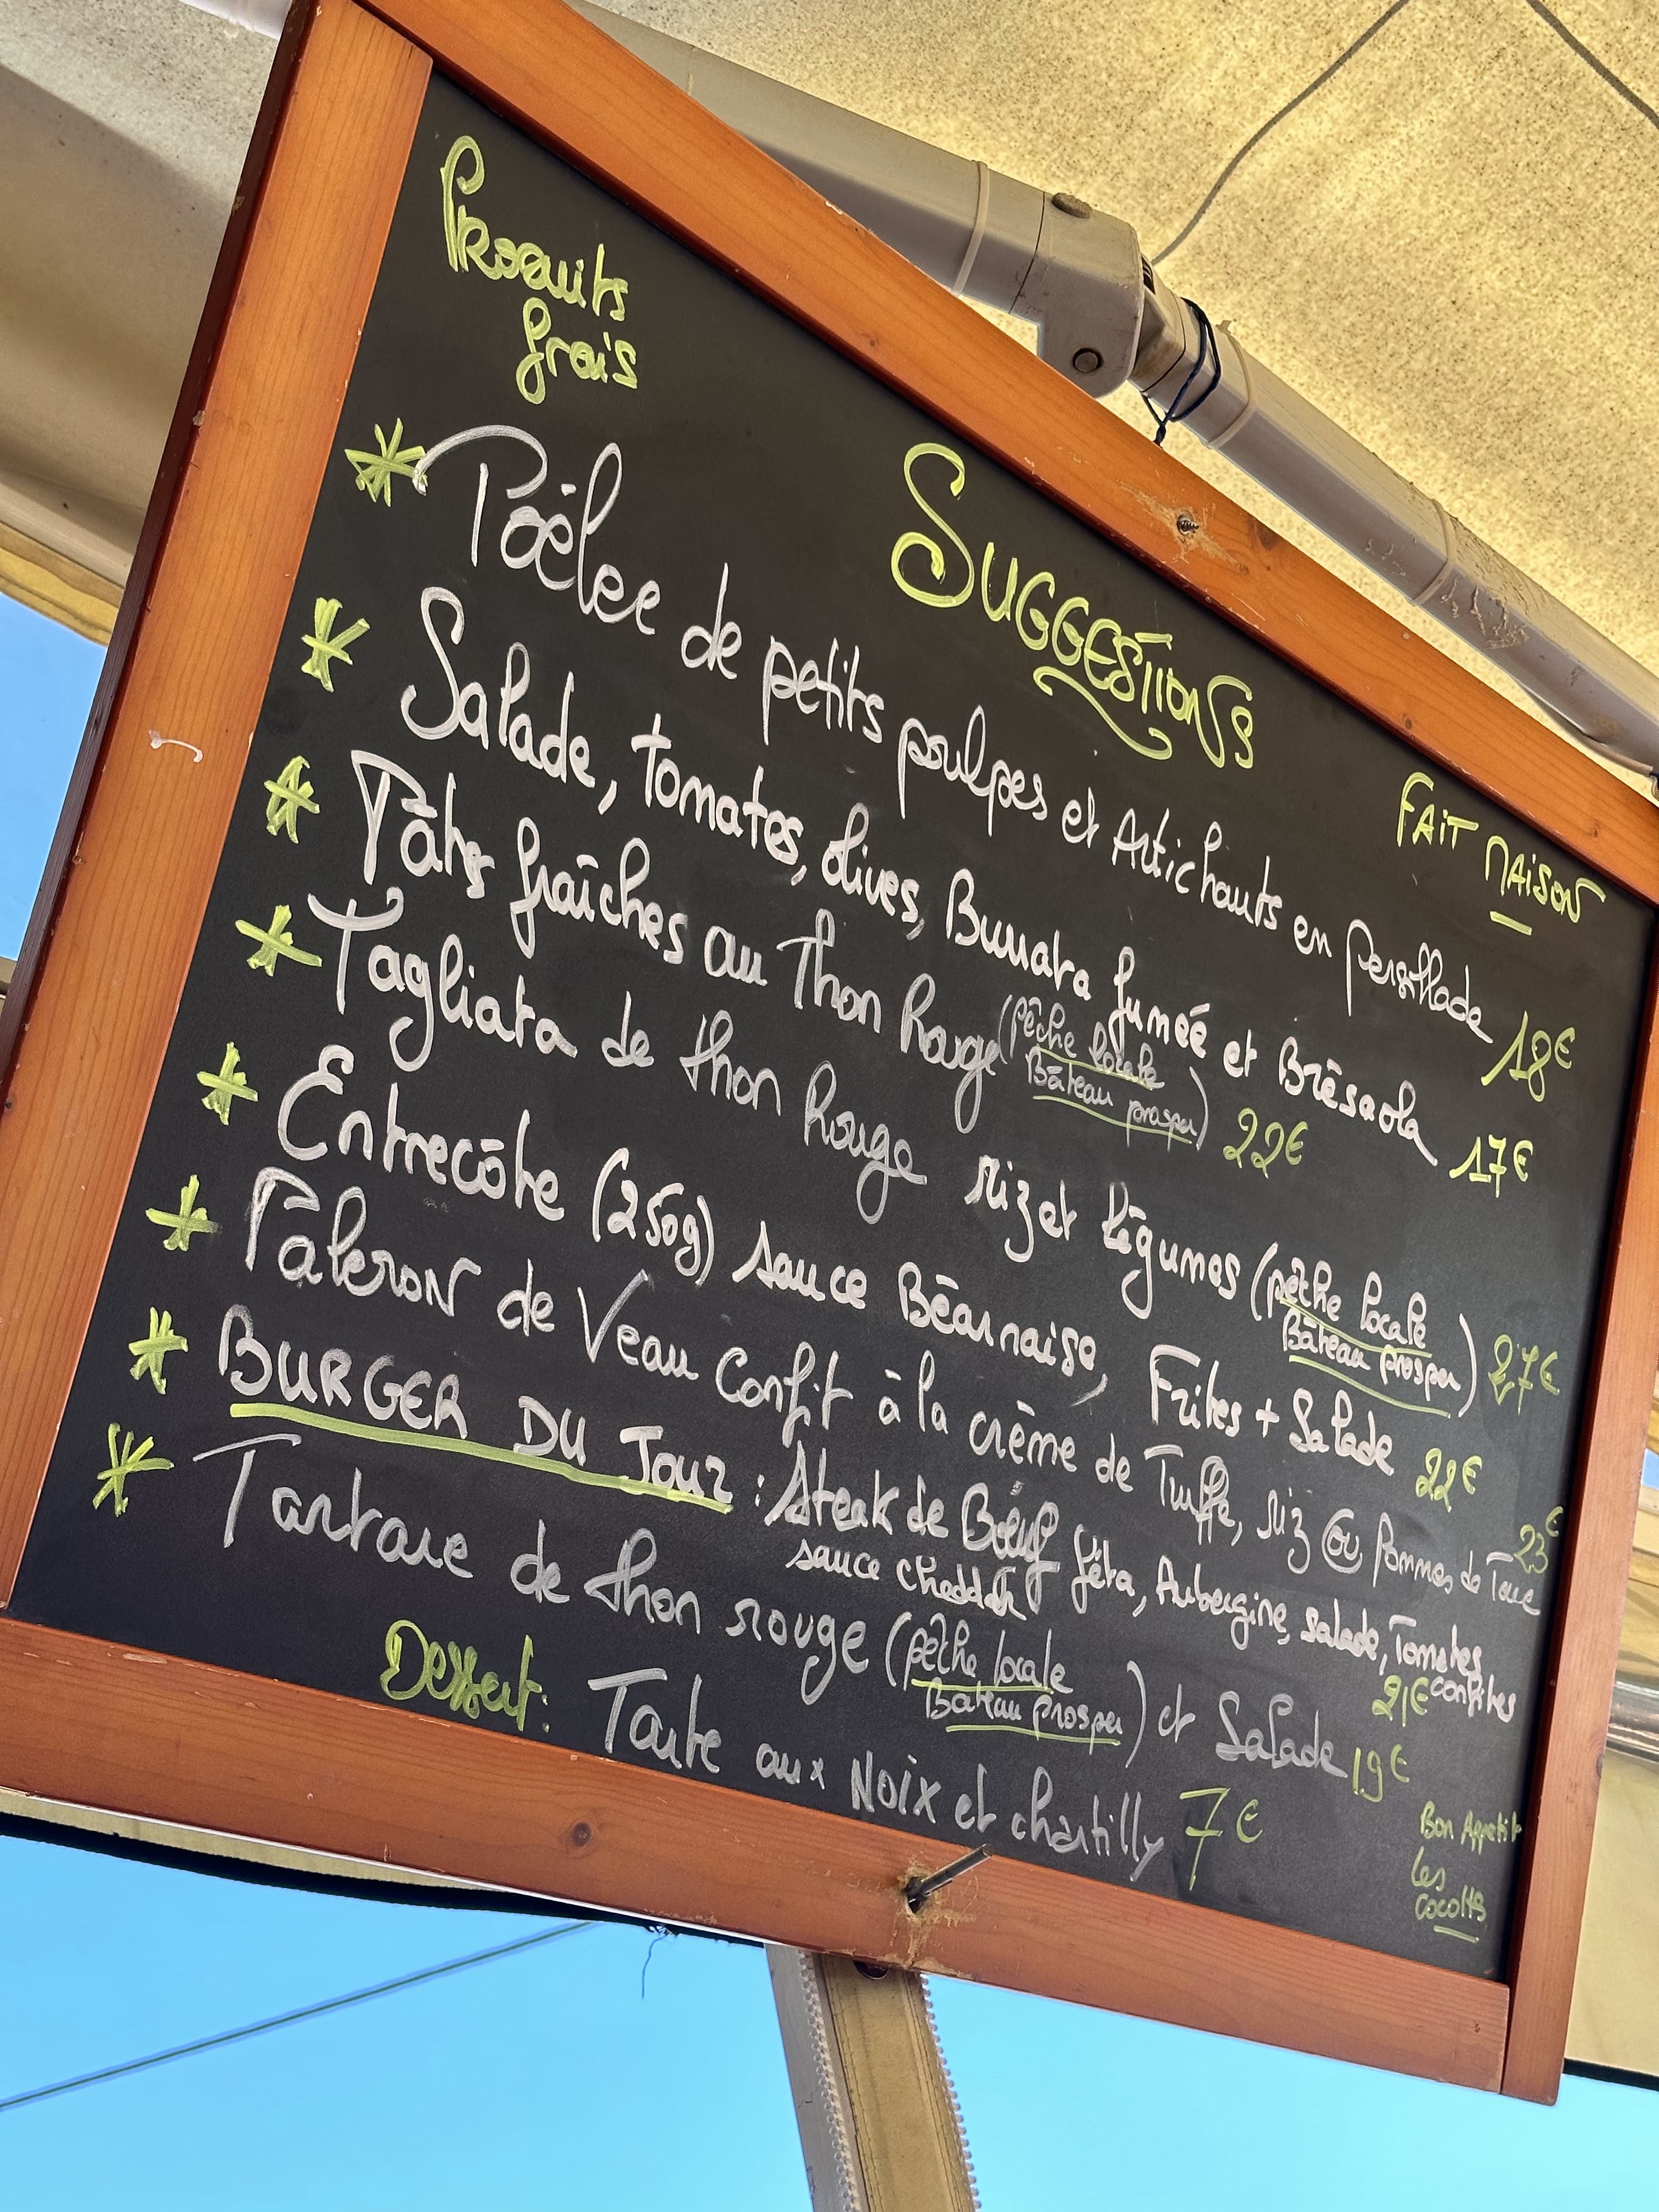 Produits
frais
SUGGESTIONS
FAIT MAISON
* Poëlee de petits poulpes et Artichauts en persillade 18€
* Salade, tomates, olives, Burrata fuméé et Brésaola 17€
* Pâtes fraîches au Thon Rouge (pêche locale
Bâteau prosper) 22€
* Tagliata de thon Rouge riz et légumes (pêche locale
Bâteau prosper) 27€
* Entrecôte (250g) sauce Béarnaise, Frites + Salade 22€
* Paleron de Veau Confit à la crème de Truffe, riz ou Pommes de Terre 23€
* BURGER DU JOUR : Steak de Bœuf fêta, Aubergine, salade, Tomates
sauce cheddar confites 21€
* Tartare de thon rouge (pêche locale
Bateau prosper) et Salade 19€
Dessert: Tarte aux Noix et chantilly 7€
Bon Appétit
les
cocottes